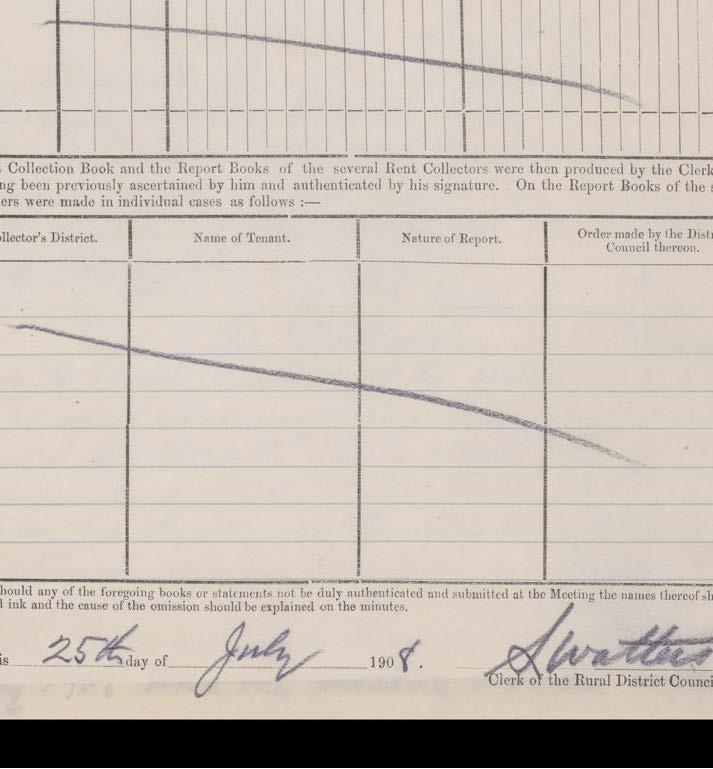 Collection Book and the Report Books of the several Rent Collectors were then produced by the Clerk
ng been previously ascertained by him and authenticated by his signature. On the Report Books of the s
ers were made in individual cases as follows :—
llector's District. Name of Tenant. Nature of Report. Order made by the Distr
Council thereon.
hould any of the foregoing books or statements not be duly authenticated and submitted at the Meeting the names thereof sh
d ink and the cause of the omission should be explained on the minutes.
is 25th day of July 1908.
S Watters
Clerk of the Rural District Counci